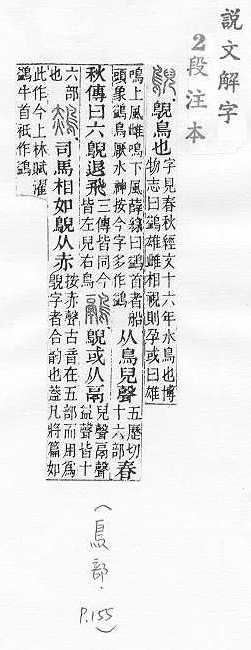 說文解字
2段注本
鶂鳥也字見春秋經文十六年水鳥也博
物志曰鷁雄雌相視則孕或曰雄
鳴上風雌鳴下風薛綜曰鷁首者船
頭象鷁鳥厭水神按今字多作鷁
从鳥兒聲五歷切
十六部春
秋傳曰六鶂退飛三傳皆同今
皆左兒右鳥
鶂或从鬲兒聲鬲聲
益聲皆十
六部
司馬相如鶂从赤按赤聲古音在五部而用爲
鶂字者合韵也葢凡將篇如
此作今上林賦濯
鷁牛首祇作鷁
(鳥部.
P.155)